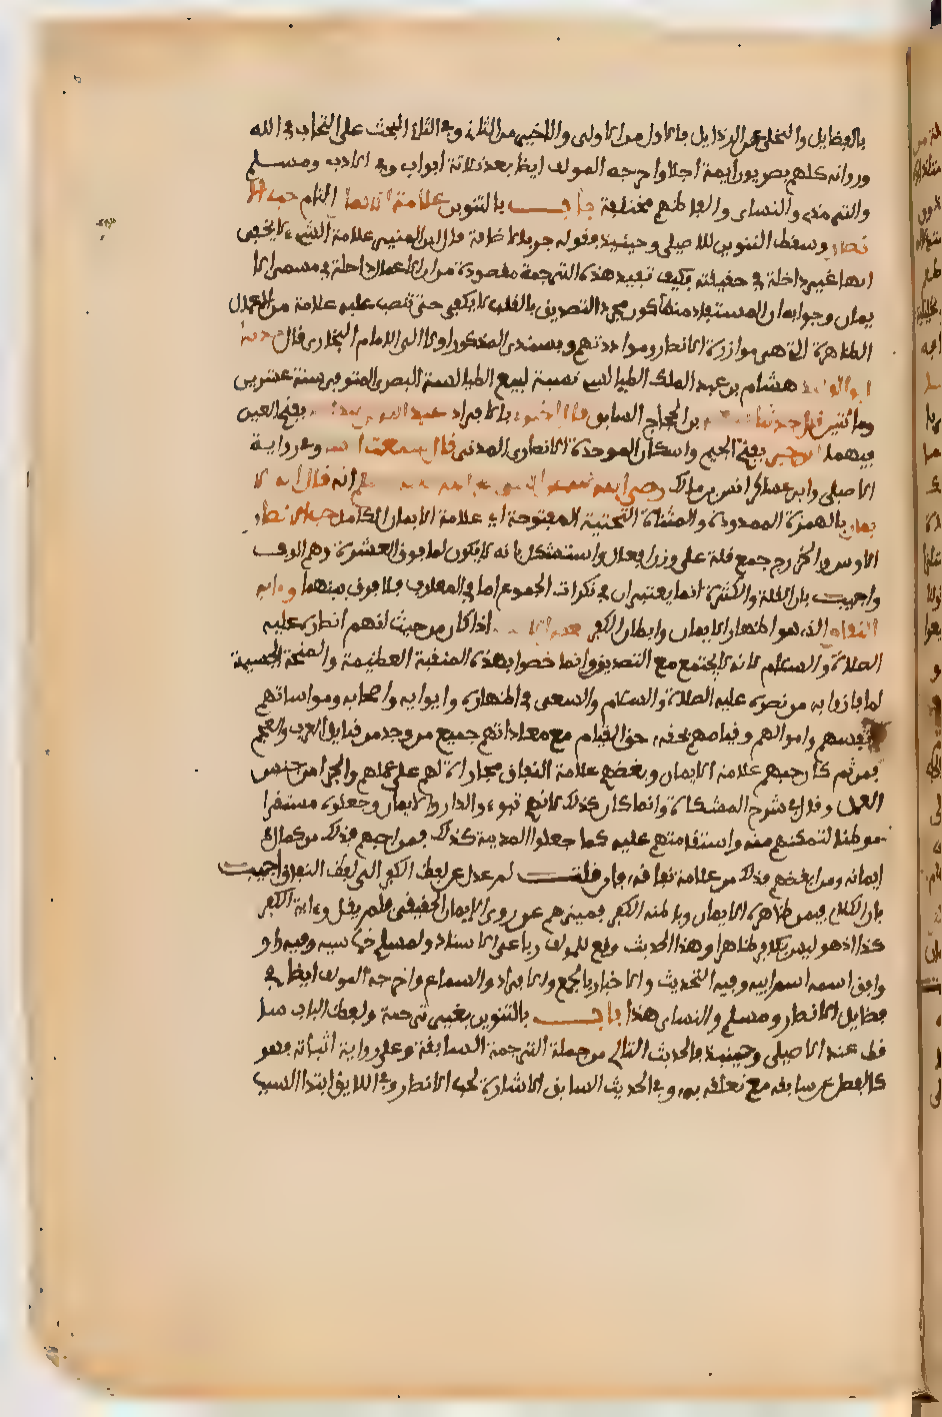 بالفضايل والتخلي عن الرذايل فالاول من الاولى والاخير من الثانى وفي الثالث الحث على التحاب في الله
ورواته كلهم بصريون ايمة اجلا واخرجه المولف ايضا بعد ثلاثة ابواب وفي الادب ومسلم
والترمذى والنساى والفاظهم مختلفة باب بالتنوين علامة الايمان التام حب الا
نصار وسقط التنوين للاصيلى وحينيذ فقوله جر بالاضافة قال ابن المنير علامة الشىء لا يخفى
انها غير داخلة في حقيقته فكيف تفيد هذه الترجمة مقصوده من ان الاعمال داخلة في مسمى الا
يمان وجوابه ان المستفاد منها كون مجرد التصديق بالقلب لا يكفى حتى تنصب عليه علامة من الاعمال
الظاهرة التى هى موازرة الانصار وموادتهم وبسندى المذكور اولا الى الامام البخارى قال حدثنا
ابو الوليد هشام بن عبد الملك الطيالسى نسبة لبيع الطيالسة البصرى المتوفى سنة عشرين
ومائتين قال حدثنا بن الحجاج السابق قال اخبرنى بالافراد عبد الله بن عبد الله بفتح العين
فيهما ابن جبر بفتح الجيم واسكان الموحدة الانصارى المدنى قال سمعت انسا وفى رواية
الاصيلى وابن عساكر انس بن مالك رضى الله عنه عن النبى صلى الله عليه وسلم انه قال اية الا
يمان بالهمزة الممدودة والمثناة التحتية المفتوحة اى علامة الايمان الكامل حب الانصار
الاوس والخزرج جمع قلة على وزن افعال واستشكل بانه لا يكون لما فوق العشرة وهم الوف
واجيب بان القلة والكثرة انما يعتبران في نكرات الجموع اما في المعارف فلا فرق بينهما واية
النفاق الذى هو اظهار الايمان وابطان الكفر بغض الانصار اذا كان من حيث انهم انصاره عليه
الصلاة والسلام لانه لا يجتمع مع التصديق وانما خصوا بهذه المنقبة العظيمة والمنحة الجسيمة
لما فازوا به من نصره عليه الصلاة والسلام والسعى في اظهاره وايوايه واصحابه ومواساتهم
بانفسهم واموالهم وقيامهم بحقه حق القيام مع معاداتهم جميع من وجد من قبايل العرب والعجم
فمن ثم كان حبهم علامة الايمان وبغضهم علامة النفاق مجازاة لهم على عملهم والجزا من جنس
العمل وقال في شرح المشكاة وانما كان كذلك لانهم تبوءوا الدار والايمان وجعلوه مستقرا
موطنا لتمكنهم منه واستقامتهم عليه كما جعلوا المدينة كذلك فمن احبهم فذلك من كمال
ايمانه ومن ابغضهم فذلك من علامة نفاقه فان قلت لم عدل عن لفظ الكفر الى لفظ النفاق اجيب
بان الكلام فيمن ظاهره الايمان وباطنه الكفر فميزهم عن ذوى الايمان الحقيقى فلم يقل واية الكفر
كذا اذ هو ليس بكافر ظاهرا وهذا الحديث وقع للمولف رباعى الاسناد ولمسلم خماسيه وفيه راو
وافق اسمه اسم ابيه وفيه التحديث والاخبار بالجمع والافراد والسماع واخرجه المولف ايضا في
فضايل الانصار ومسلم والنساى هذا باب بالتنوين بغير ترجمة ولفظ الباب سا
قط عند الاصيلى وحينيذ فالحديث التالى من جملة الترجمة السابقة وعلى رواية اثباته فهو
كالفصل عن سابقه مع تعلقه به وفي الحديث السابق الاشارة لحب الانصار وفي اللاحق ابتدا السبب